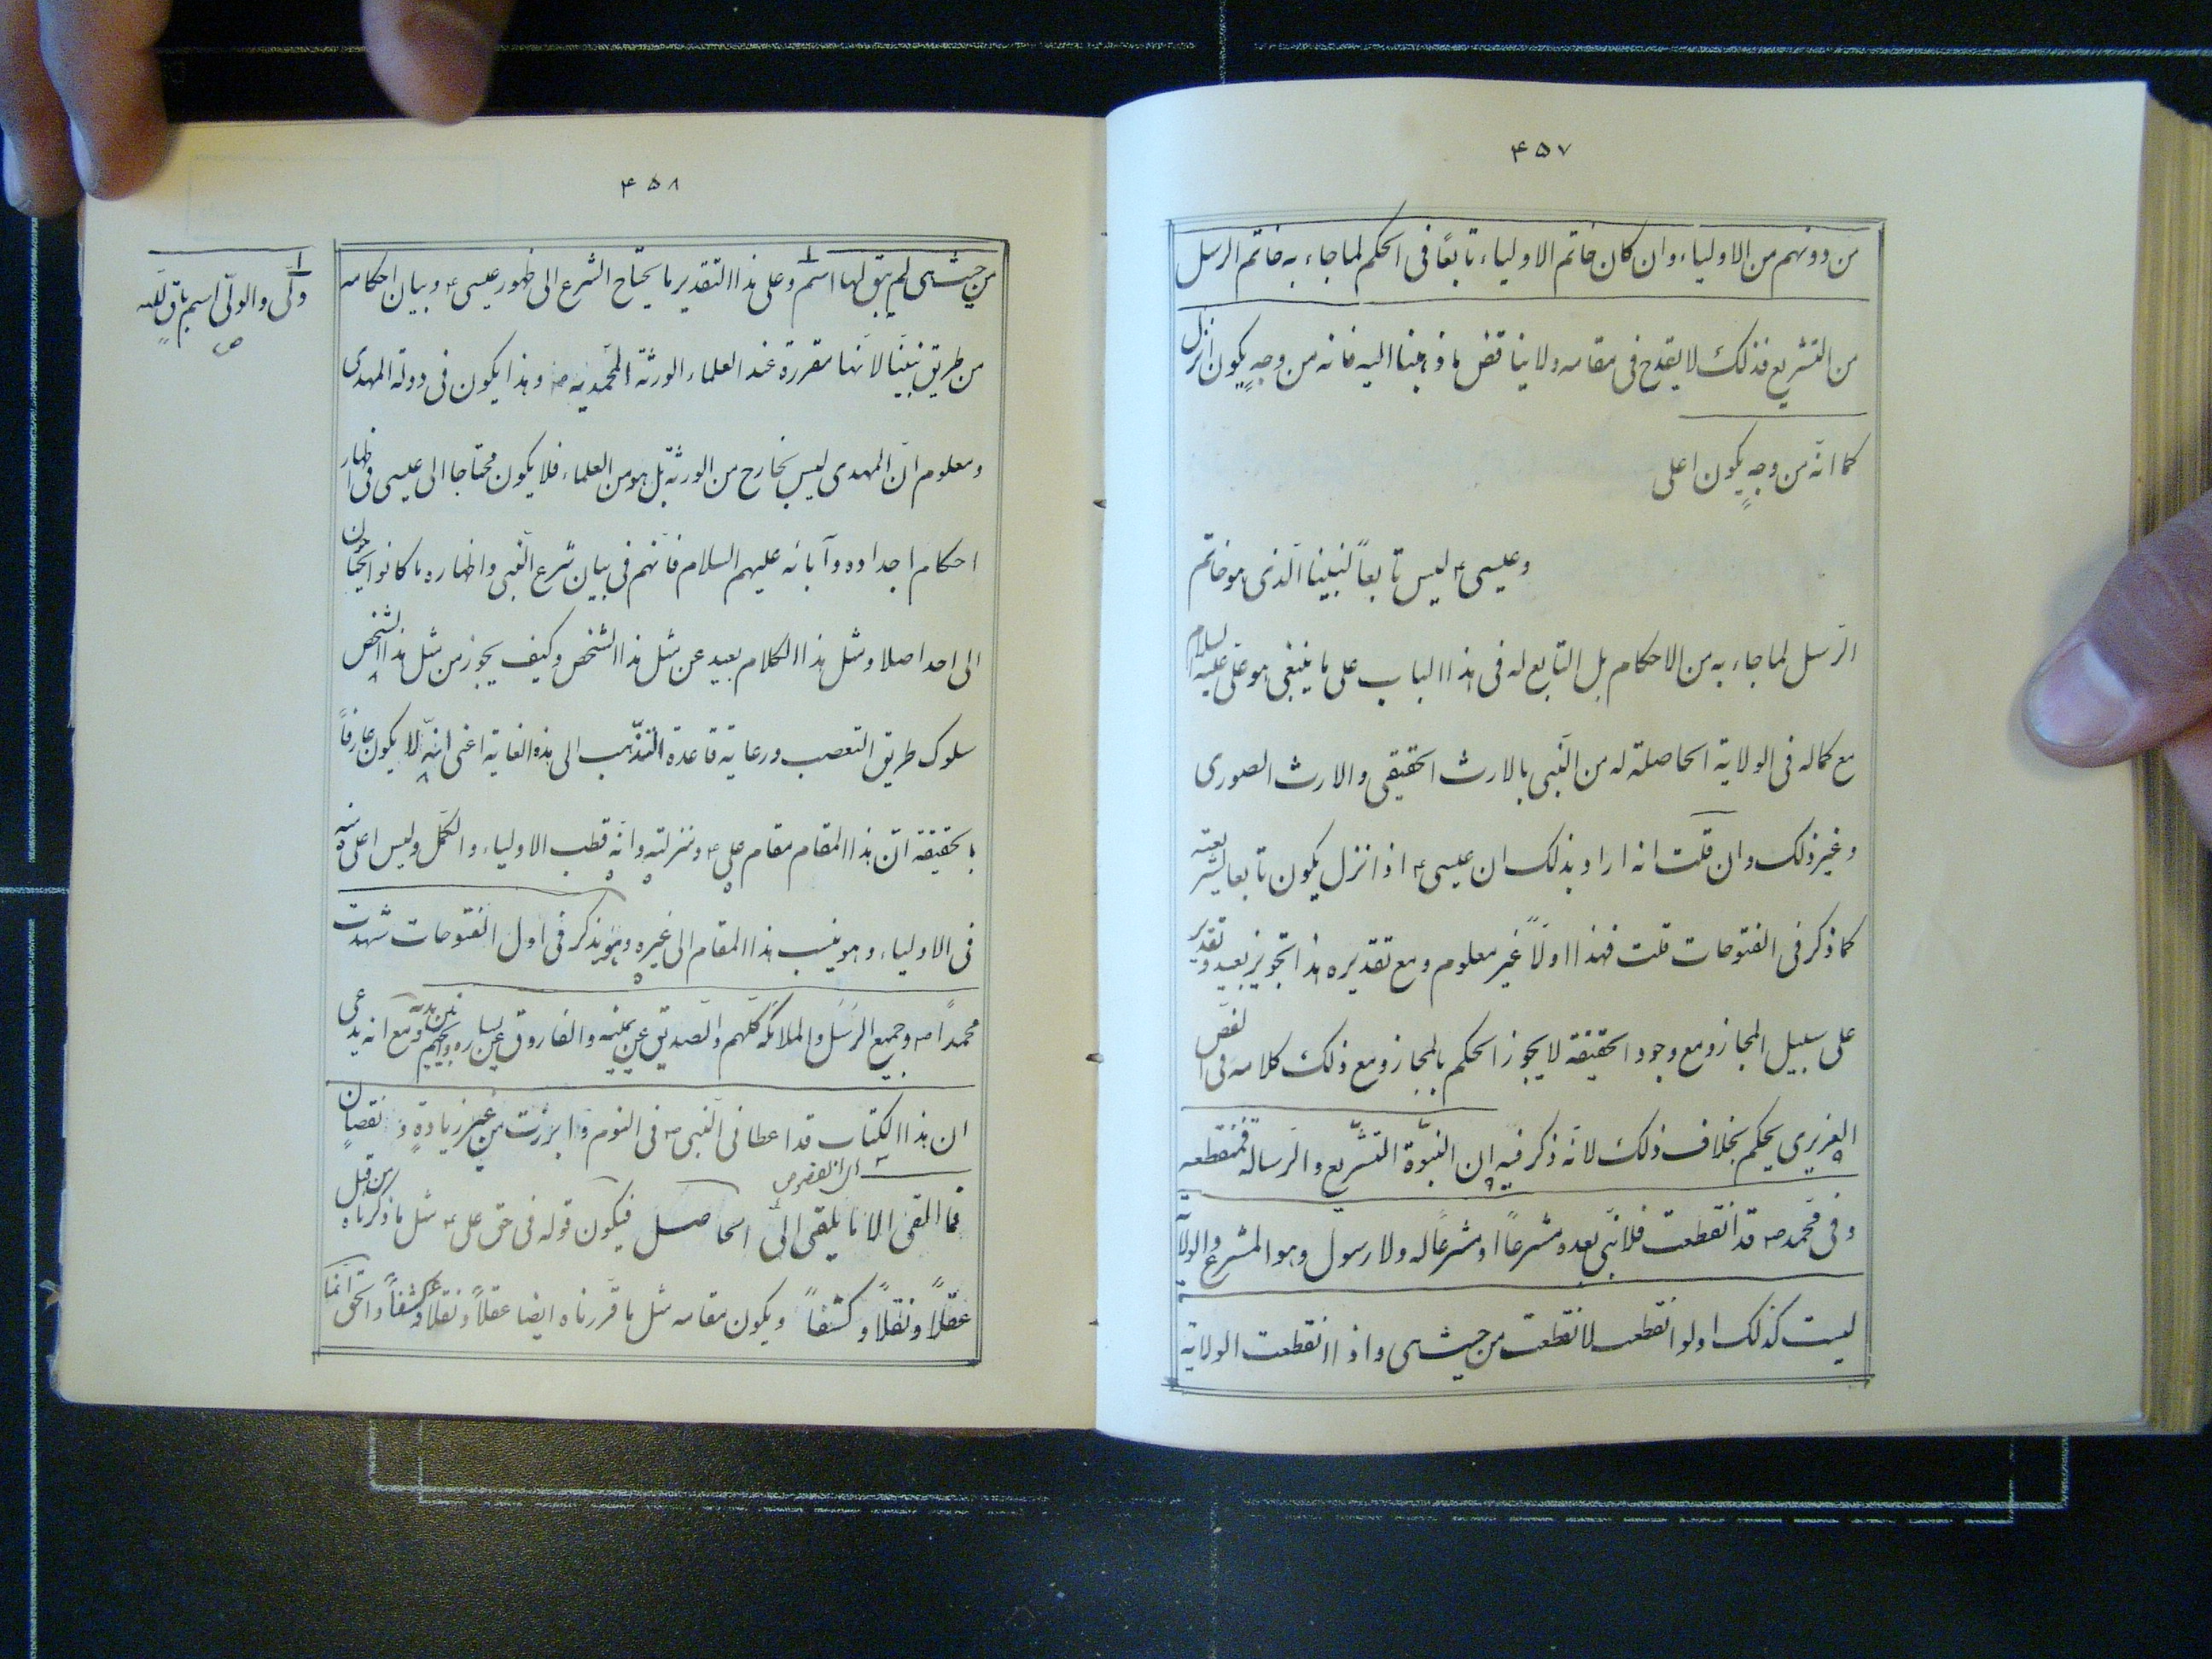 ۴۵۷
من دونهم من الاولیاء وان کان خاتم الاولیاء تابعًا فی الحکم لما جاء به خاتم الرسل
من التشریع فذلک لا یقدح فی مقامه ولا یناقض ما ذهبنا الیه فانه من وجهٍ یکون انزل
کما انّه من وجهٍ یکون اعلی
وعیسی ع لیس تابعاً لنبینا الّذی هو خاتم
الرّسل لما جاء به من الاحکام بل التابع له فی هذا الباب علی ما ینبغی هو علی علیه السلام
مع کماله فی الولایة الحاصلة له من النّبی بالارث الحقیقی والارث الصوری
وغیر ذلک وان قلت انه اراد بذلک ان عیسی ع اذا نزل یکون تابعا لشریعته
کما ذکر فی الفتوحات قلت فهذا اولاً غیر معلوم ومع تقدیره هذا تجویز بعید وتقدیر
علی سبیل المجاز ومع وجود الحقیقة لا یجوز الحکم بالمجاز ومع ذلک کلامه فی الفصّ
العزیری یحکم بخلاف ذلک لانّه ذکر فیه ان النبوّة التشریع والرسالة فمنقطعه
وفی محمد ص قد انقطعت فلا نبّی بعده مشرعاً او مشرعاً له ولا رسول وهو المشرع والولایة
لیست کذلک اولو انقطعت لانقطعت من حیث هی واذا انقطعت الولایة
۴۵۸
من حیث هی لم یبق لها اسم وعلی هذا التقدیر ما یحتاج الشرع الی ظهور عیسی ع وبیان احکامه
ولیّ والولیّ اسم باق للّه
ص
من طریق نبیّنا لانّها مقررة عند العلماء الورثة المحمدیه ص وهذا یکون فی دولة المهدی
ومعلوم انّ المهدی لیس بخارج من الورثة بل هو من العلماء فلا یکون محتاجا الی عیسی فی اظهار
احکام اجداده وآبائه علیهم السلام فانّهم فی بیان شرع النّبی واظهاره ما کانوا یحتاجون
الی احد اصلا ومثل هذا الکلام بعید عن مثل هذا الشخص وکیف یجوز من مثل هذا الشخص
سلوک طریق التعصب ورعایة قاعدة التمذّهب الی هذه الغایة اعنی انّه لا یکون عارفاً
بالحقیقة انّ هذا المقام مقام علی ع ومنزلته وانّه قطب الاولیاء والکمّل ولیس اعلی منه
فی الاولیاء وهو ینسب هذا المقام الی غیره وهو یذکر فی اول الفتوحات شهدت
محمداً ص وجمیع الرّسل والملائکة کلّهم والصّدیق عن یمینه والفاروق عن یساره ومع انه یدعی
ان هذا الکتاب قد اعطانی النّبی ص فی النوم وابرزت من غیر زیادةٍ و نقصان
فما القی الا ما یلقی الیّ الحاصل فیکون قوله فی حق علی ع مثل ما ذکرناه من قبل
عقلاً ونقلاً وکشفاً ویکون مقامه مثل ما قررناه ایضا عقلاً ونقلاً وکشفاً والحق انّما